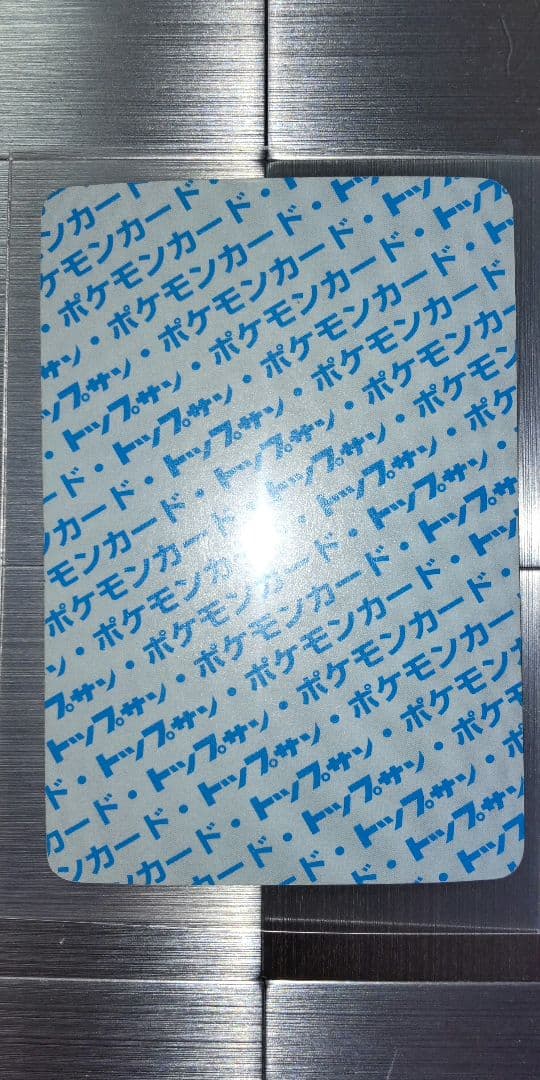 ンカード
ケモンカード・
・ポケモンカード・ト
サン・ポケモンカード・トップ
ップサン・ポケモンカード・トップ
・トップサン・ポケモンカード・トップ
ード・トップサン・ポケモンカード・ト
ンカード・トップサン・ポケモンカード・
モンカード・トップサン・ポケモンカード
ポケモンカード・トップサン・ポケモンカー
ン・ポケモンカード・トップサン・ポケモン
プサン・ポケモンカード・トップサン・ポケ
トップサン・ポケモンカード・トップサン・
ド・トップサン・ポケモンカード・トップサ
カード・トップサン・ポケモンカード・トッ
ンカード・トップサン・ポケモンカード・
ード・トップサン・ポケモンカー
ド・トップサン・ポケモン
・トップサン・ポ
トップ